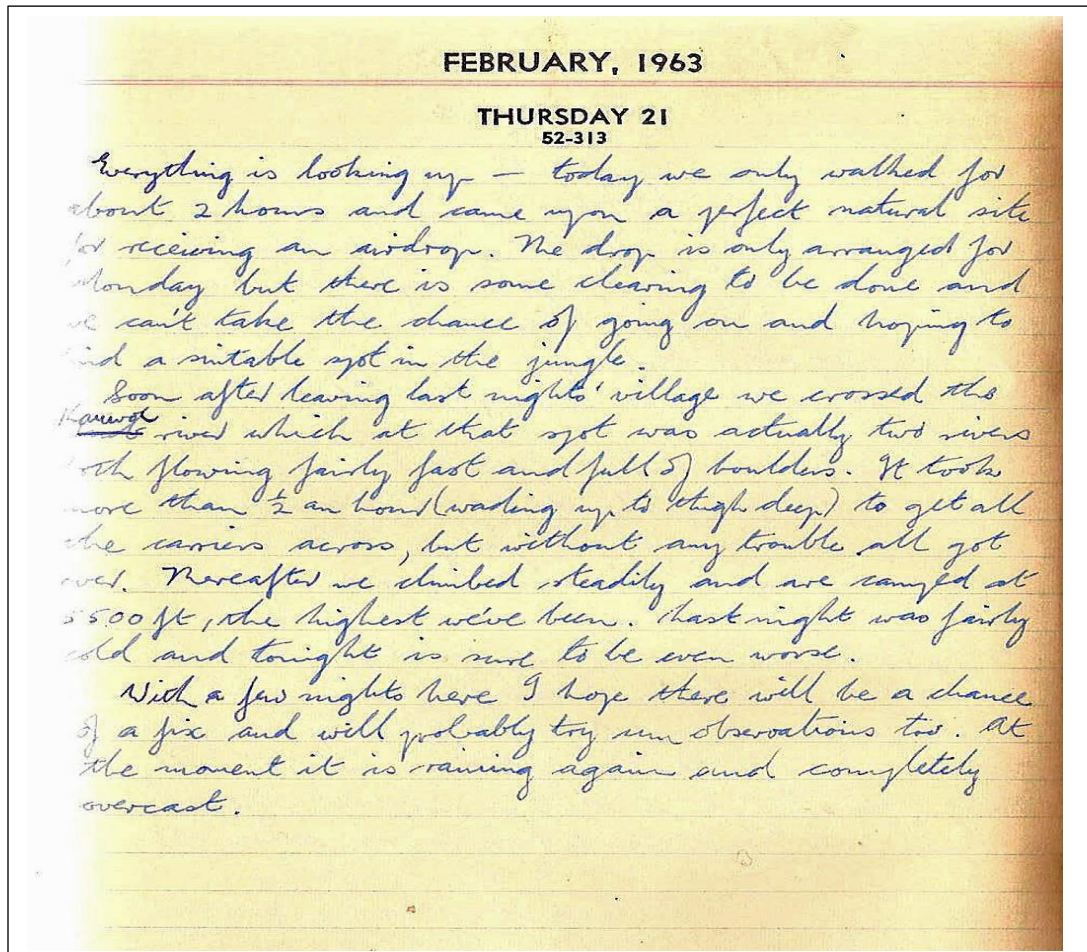 FEBRUARY, 1963
THURSDAY 21
52-313
Everything is looking up — today we only walked for
about 2 hours and came upon a perfect natural site
for receiving an airdrop. The drop is only arranged for
Monday but there is some clearing to be done and
we can't take the chance of going on and hoping to
find a suitable spot in the jungle.
Soon after leaving last nights' village we crossed the
river which at that spot was actually two rivers
both flowing fairly fast and full of boulders. It took
more than ½ an hour (wading up to thigh deep) to get all
the carriers across, but without any trouble all got
over. Thereafter we climbed steadily and are camped at
5500 ft, the highest we've been. Last night was fairly
cold and tonight is sure to be even worse.
With a few nights here I hope there will be a chance
of a fix and will probably try sun observations too. At
the moment it is raining again and completely
overcast.